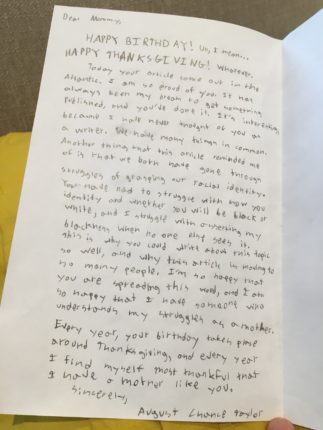 Dear Mommy,
HAPPY BIRTHDAY! Uh, I mean...
HAPPY THANKSGIVING! Whatever.
Today your article came out in the
Atlantic. I am so proud of you. It has
always been my dream to get something
published, and you've done it. It's interesting,
because I have never thought of you as
a writer. We have many things in common.
Another thing that this article reminded me
of is that we both have gone through
struggles of grasping our racial identity.
You have had to struggle with how you
identity and whether you will be black or
white, and I struggle with asserting my
blackness when no one else sees it.
This is why you could write about this topic
so well, and why this article is moving to
so many people. I'm so happy that
you are spreading this word, and I am
so happy that I have someone who
understands my struggles as a mother.
Every year, your birthday takes place
around Thanksgiving, and every year
I find myself most thankful that
I have a mother like you.
Sincerely,
August Chance Taylor